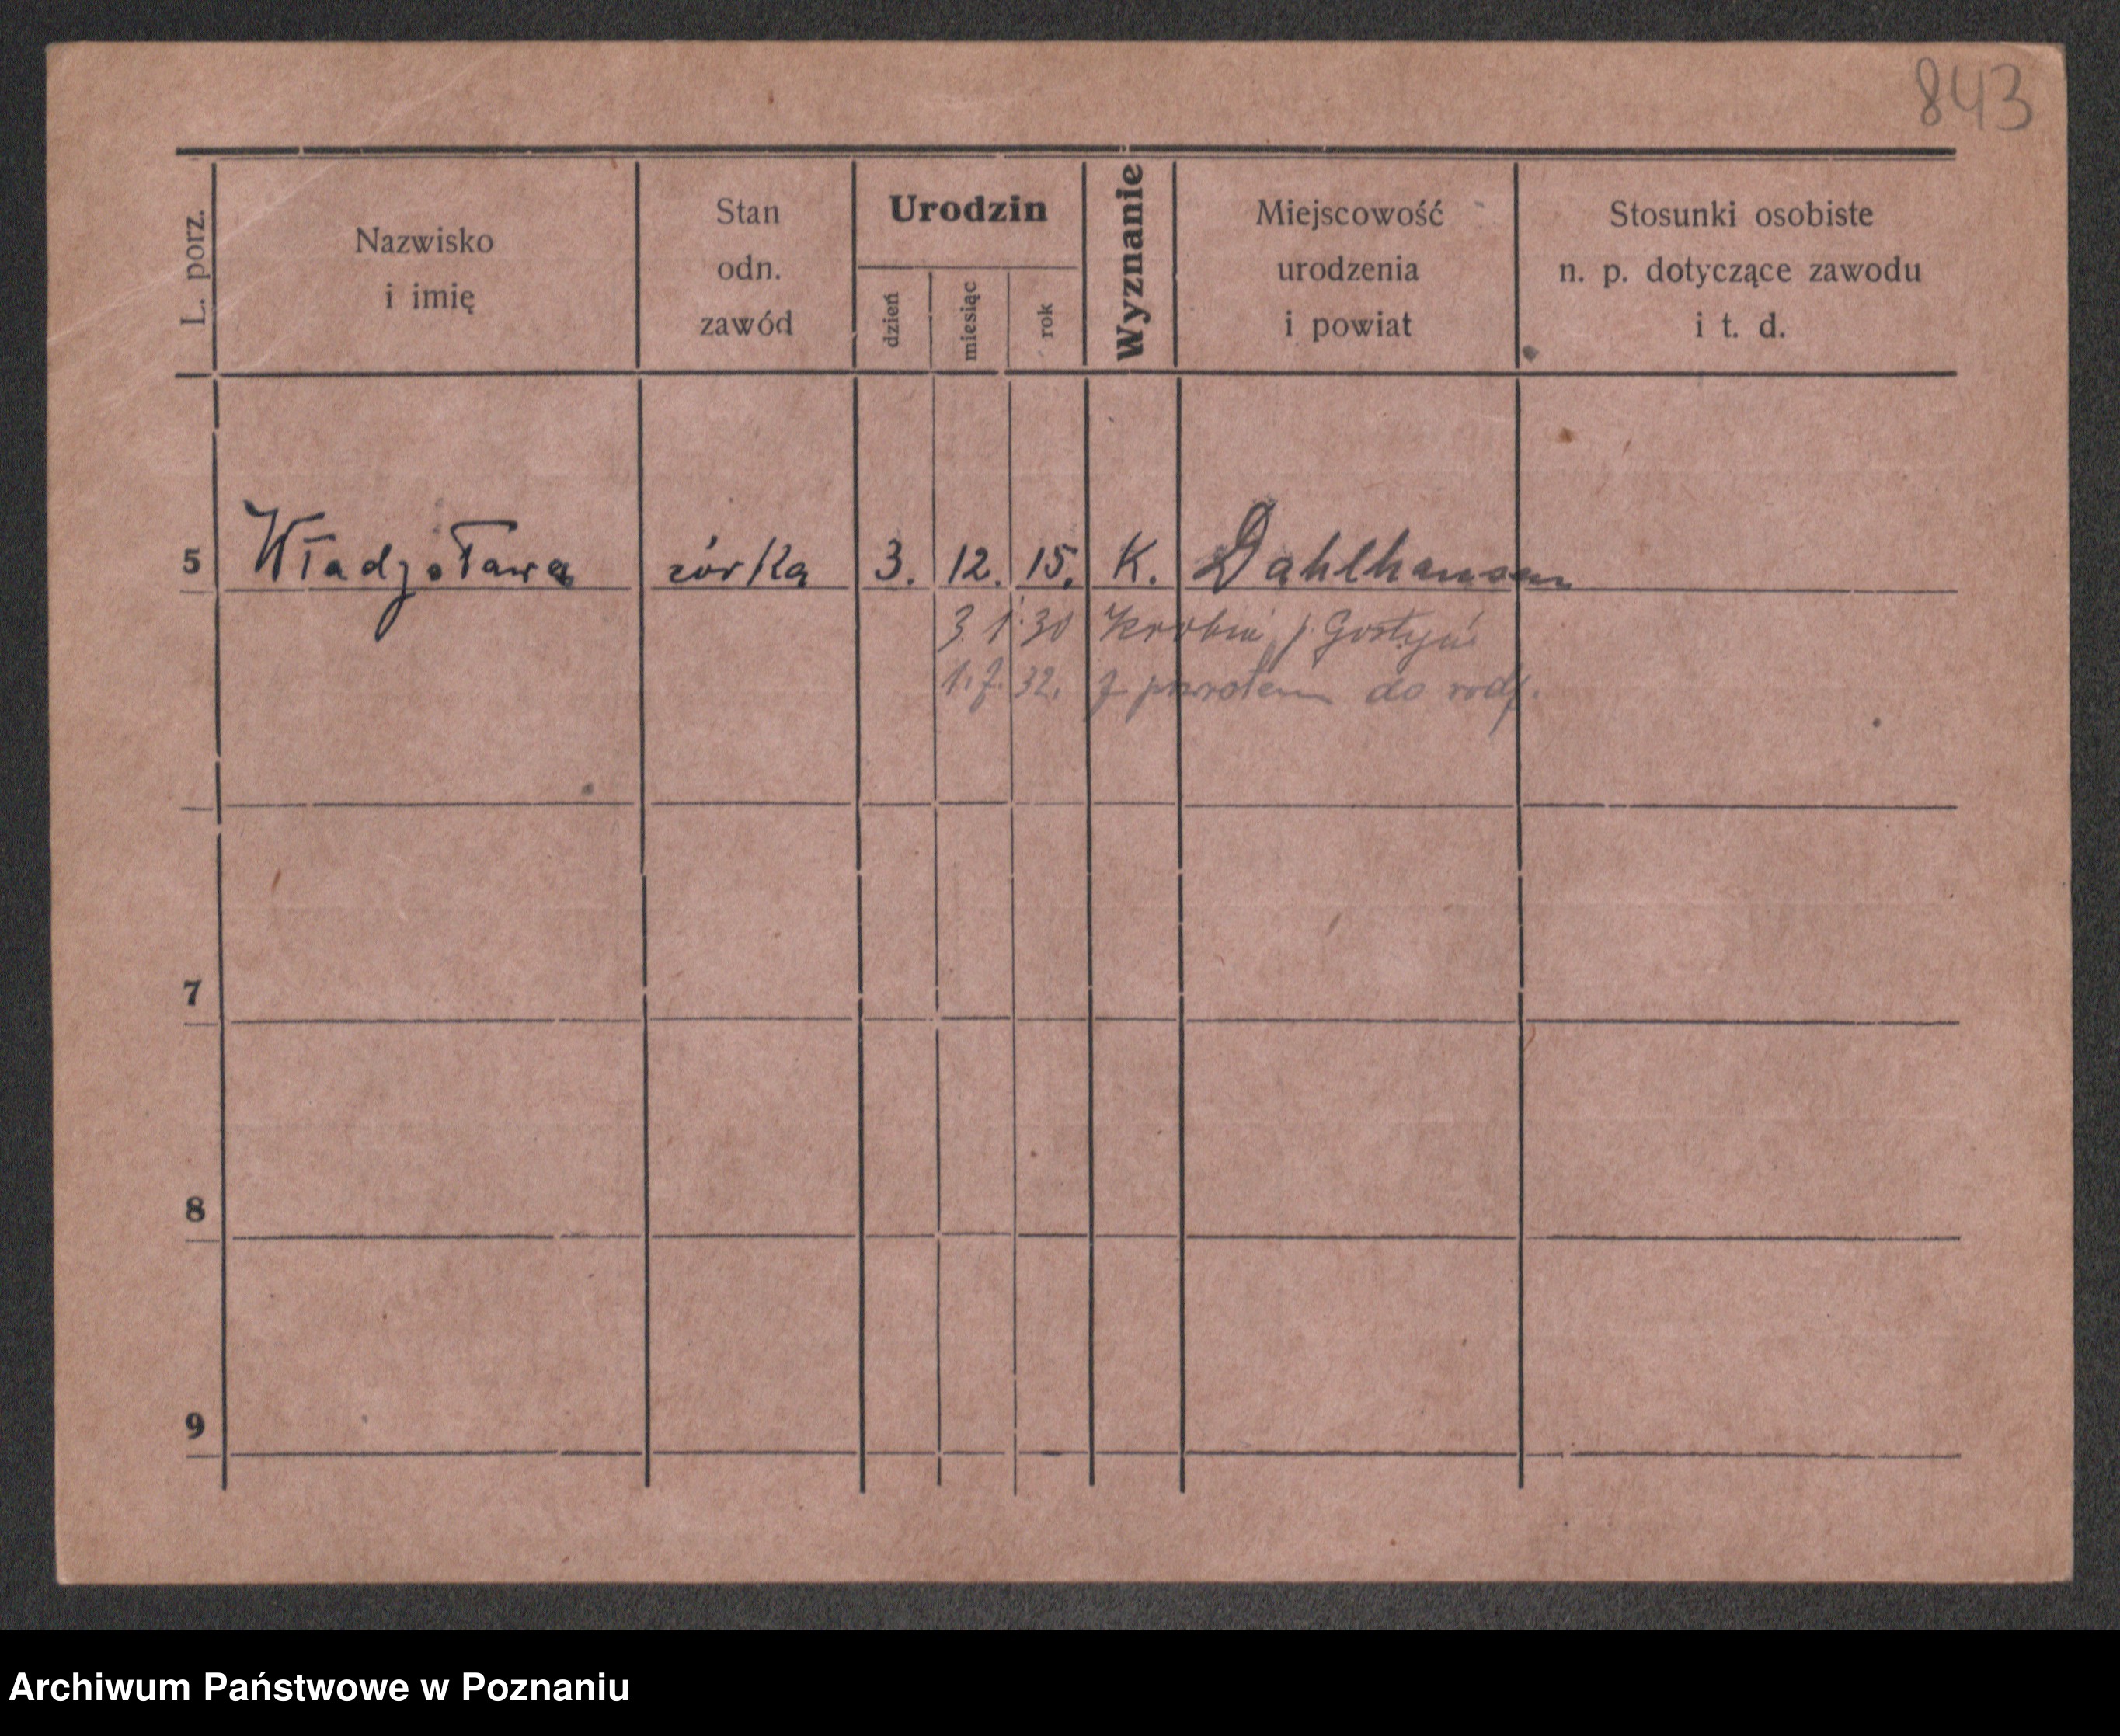 843
L. porz.
Nazwisko
i imię
Stan
odn.
zawód
Urodzin
dzień
miesiąc
rok
Wyznanie
Miejscowość
urodzenia
i powiat
Stosunki osobiste
n. p. dotyczące zawodu
i t. d.
5 córka 3. 12. 15. K. Dahlhausen
3. 1. 30 Krobia, p. Gostyń
1. 7. 32. z powrotem do rodz.
7
8
9
Archiwum Państwowe w Poznaniu